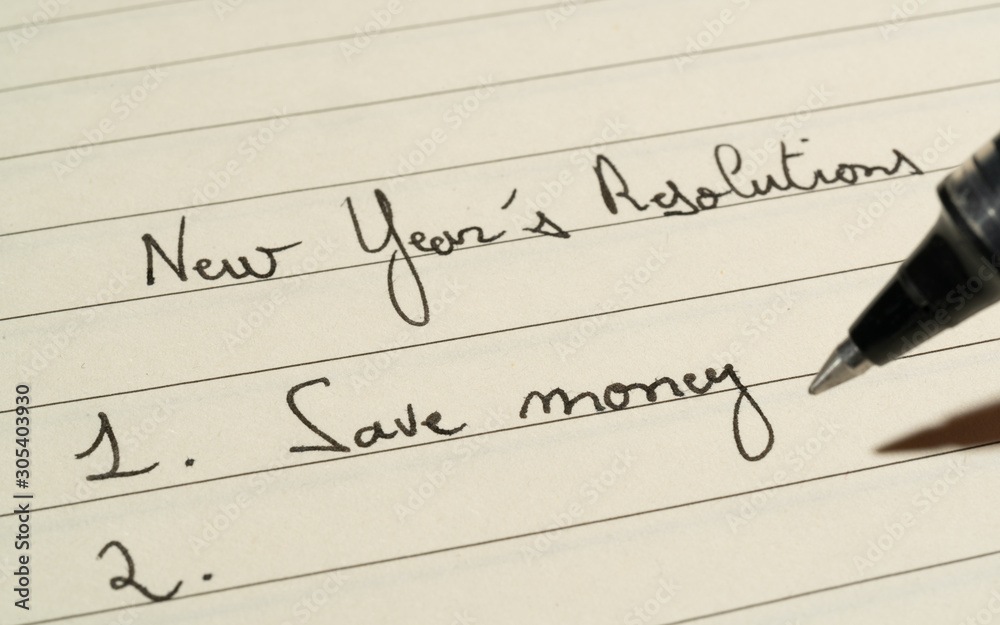 New Year's Resolutions
1. Save money
2.
Adobe Stock | #305403930